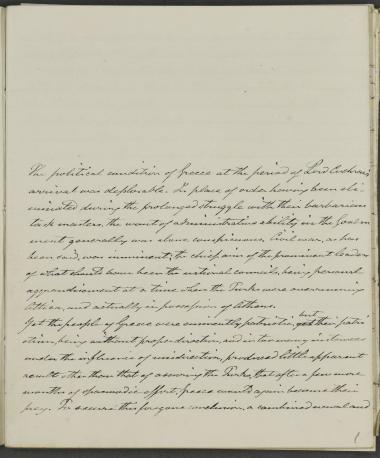 The political condition of Greece at the period of Lord Cochrane's
arrival was deplorable. In place of order having been eli-
minated during the prolonged struggle with their barbarian
task masters, the want of administrative ability in the Govern
ment generally was alone conspicuous. Civil war, as has
been said, was imminent; the chief aim of the prominent leaders
of what should have been the national councils, being personal
aggrandisement at a time when the Turks were overrunning
Attica, and actually in possession of Athens.
Yet the people of Greece were eminently patriotic, but their patri
otism, being without proper direction, and in too many instances
under the influence of misdirection, produced little apparent
result other than that of assuring the Turks, that after a few more
months of spasmodic effort, Greece would again become their
prey. To secure this foregone conclusion, a combined naval and